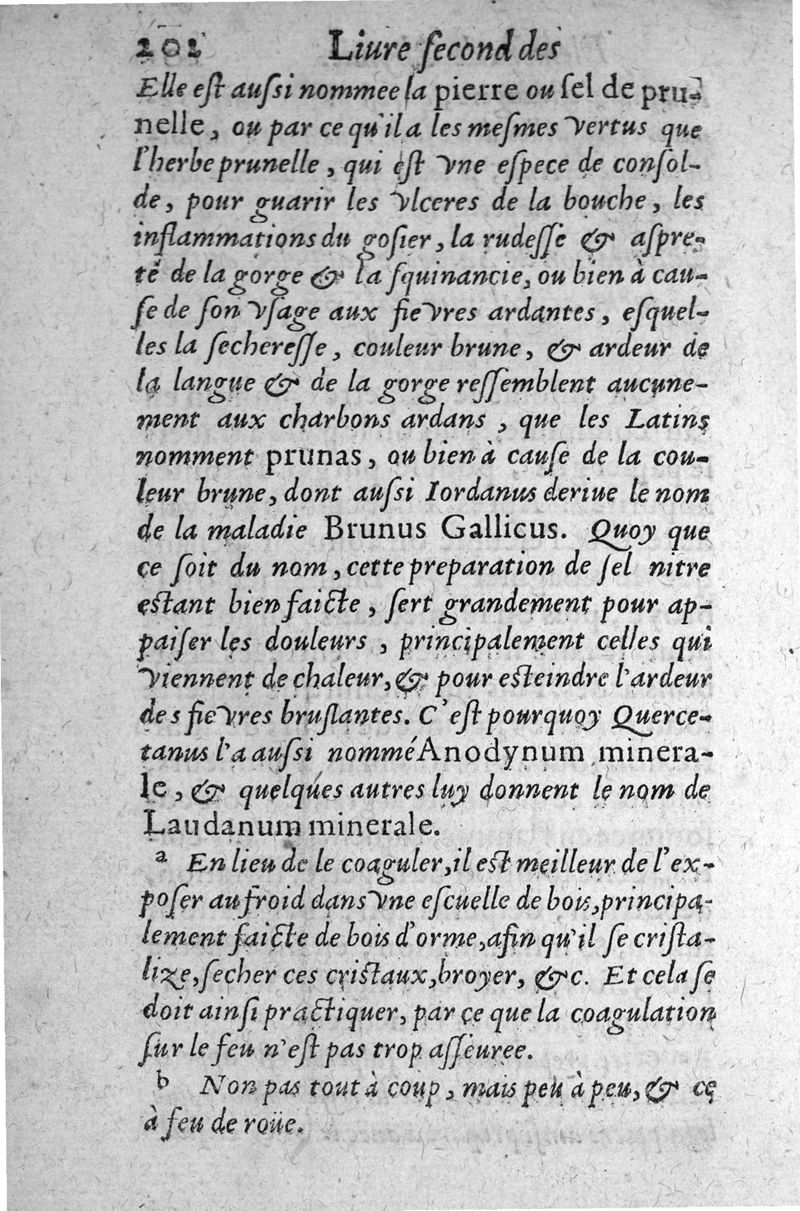 202 Liure ſecond des
Elle eſt auſsi nommee la pierre ou ſel de pru-
nelle, ou par ce qu'il a les meſmes vertus que
l'herbe prunelle, qui eſt vne eſpece de conſol-
de, pour guarir les vlceres de la bouche, les
inflammations du goſier, la rudeſſe & aſpre-
té de la gorge & la ſquinancie, ou bien à cau-
ſe de ſon vſage aux fievres ardantes, eſquel-
les la ſechereſſe, couleur brune, & ardeur de
la langue & de la gorge reſſemblent aucune-
ment aux charbons ardans, que les Latins
nomment prunas, ou bien à cauſe de la cou-
leur brune, dont auſsi Iordanus deriue le nom
de la maladie Brunus Gallicus. Quoy que
ce ſoit du nom, cette preparation de ſel nitre
eſtant bien faicte, ſert grandement pour ap-
paiſer les douleurs, principalement celles qui
viennent de chaleur, & pour eſteindre l'ardeur
des fievres bruſlantes. C'eſt pourquoy Querce-
tanus l'a auſsi nommé Anodynum minera-
le, & quelques autres luy donnent le nom de
Laudanum minerale.
a En lieu de le coaguler, il eſt meilleur de l'ex-
poſer au froid dans vne eſcuelle de bois, principa-
lement faicte de bois d'orme, afin qu'il ſe criſta-
lize, ſecher ces criſtaux, broyer, &c. Et cela ſe
doit ainſi practiquer, par ce que la coagulation
ſur le feu n'eſt pas trop aſſeuree.
b Non pas tout à coup, mais peu à peu, & ce
à feu de roüe.